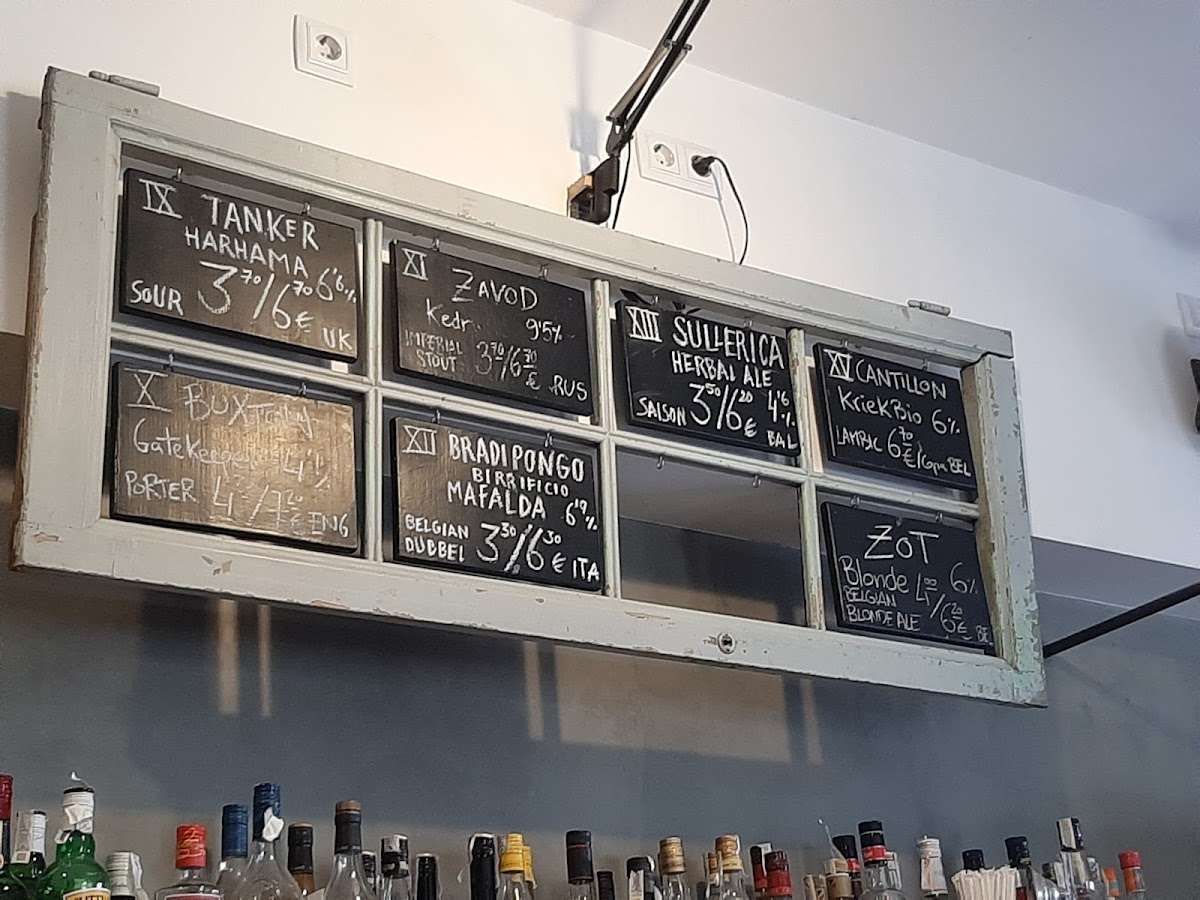 IX TANKER
HARHAMA
SOUR 3'70/6'70€ 6'6% UK
X BUXTON
Gatekeeper 4'1%
PORTER 4/7'20€ ENG
XI ZAVOD
Kedr 9'5%
IMPERIAL
STOUT 3'70/6'70€ RUS
XII BRADIPONGO
BIRRIFICIO
MAFALDA 6'9%
BELGIAN
DUBBEL 3'30/6'30€ ITA
XIII SULLERICA
HERBAL ALE
SAISON 3'50/6'20€ 4'6% BAL
XV CANTILLON
KriekBio 6%
LAMBIC 6'70€/Copa BEL
ZOT
Blonde 6%
BELGIAN
BLONDE ALE 4'00/6'20€ BE